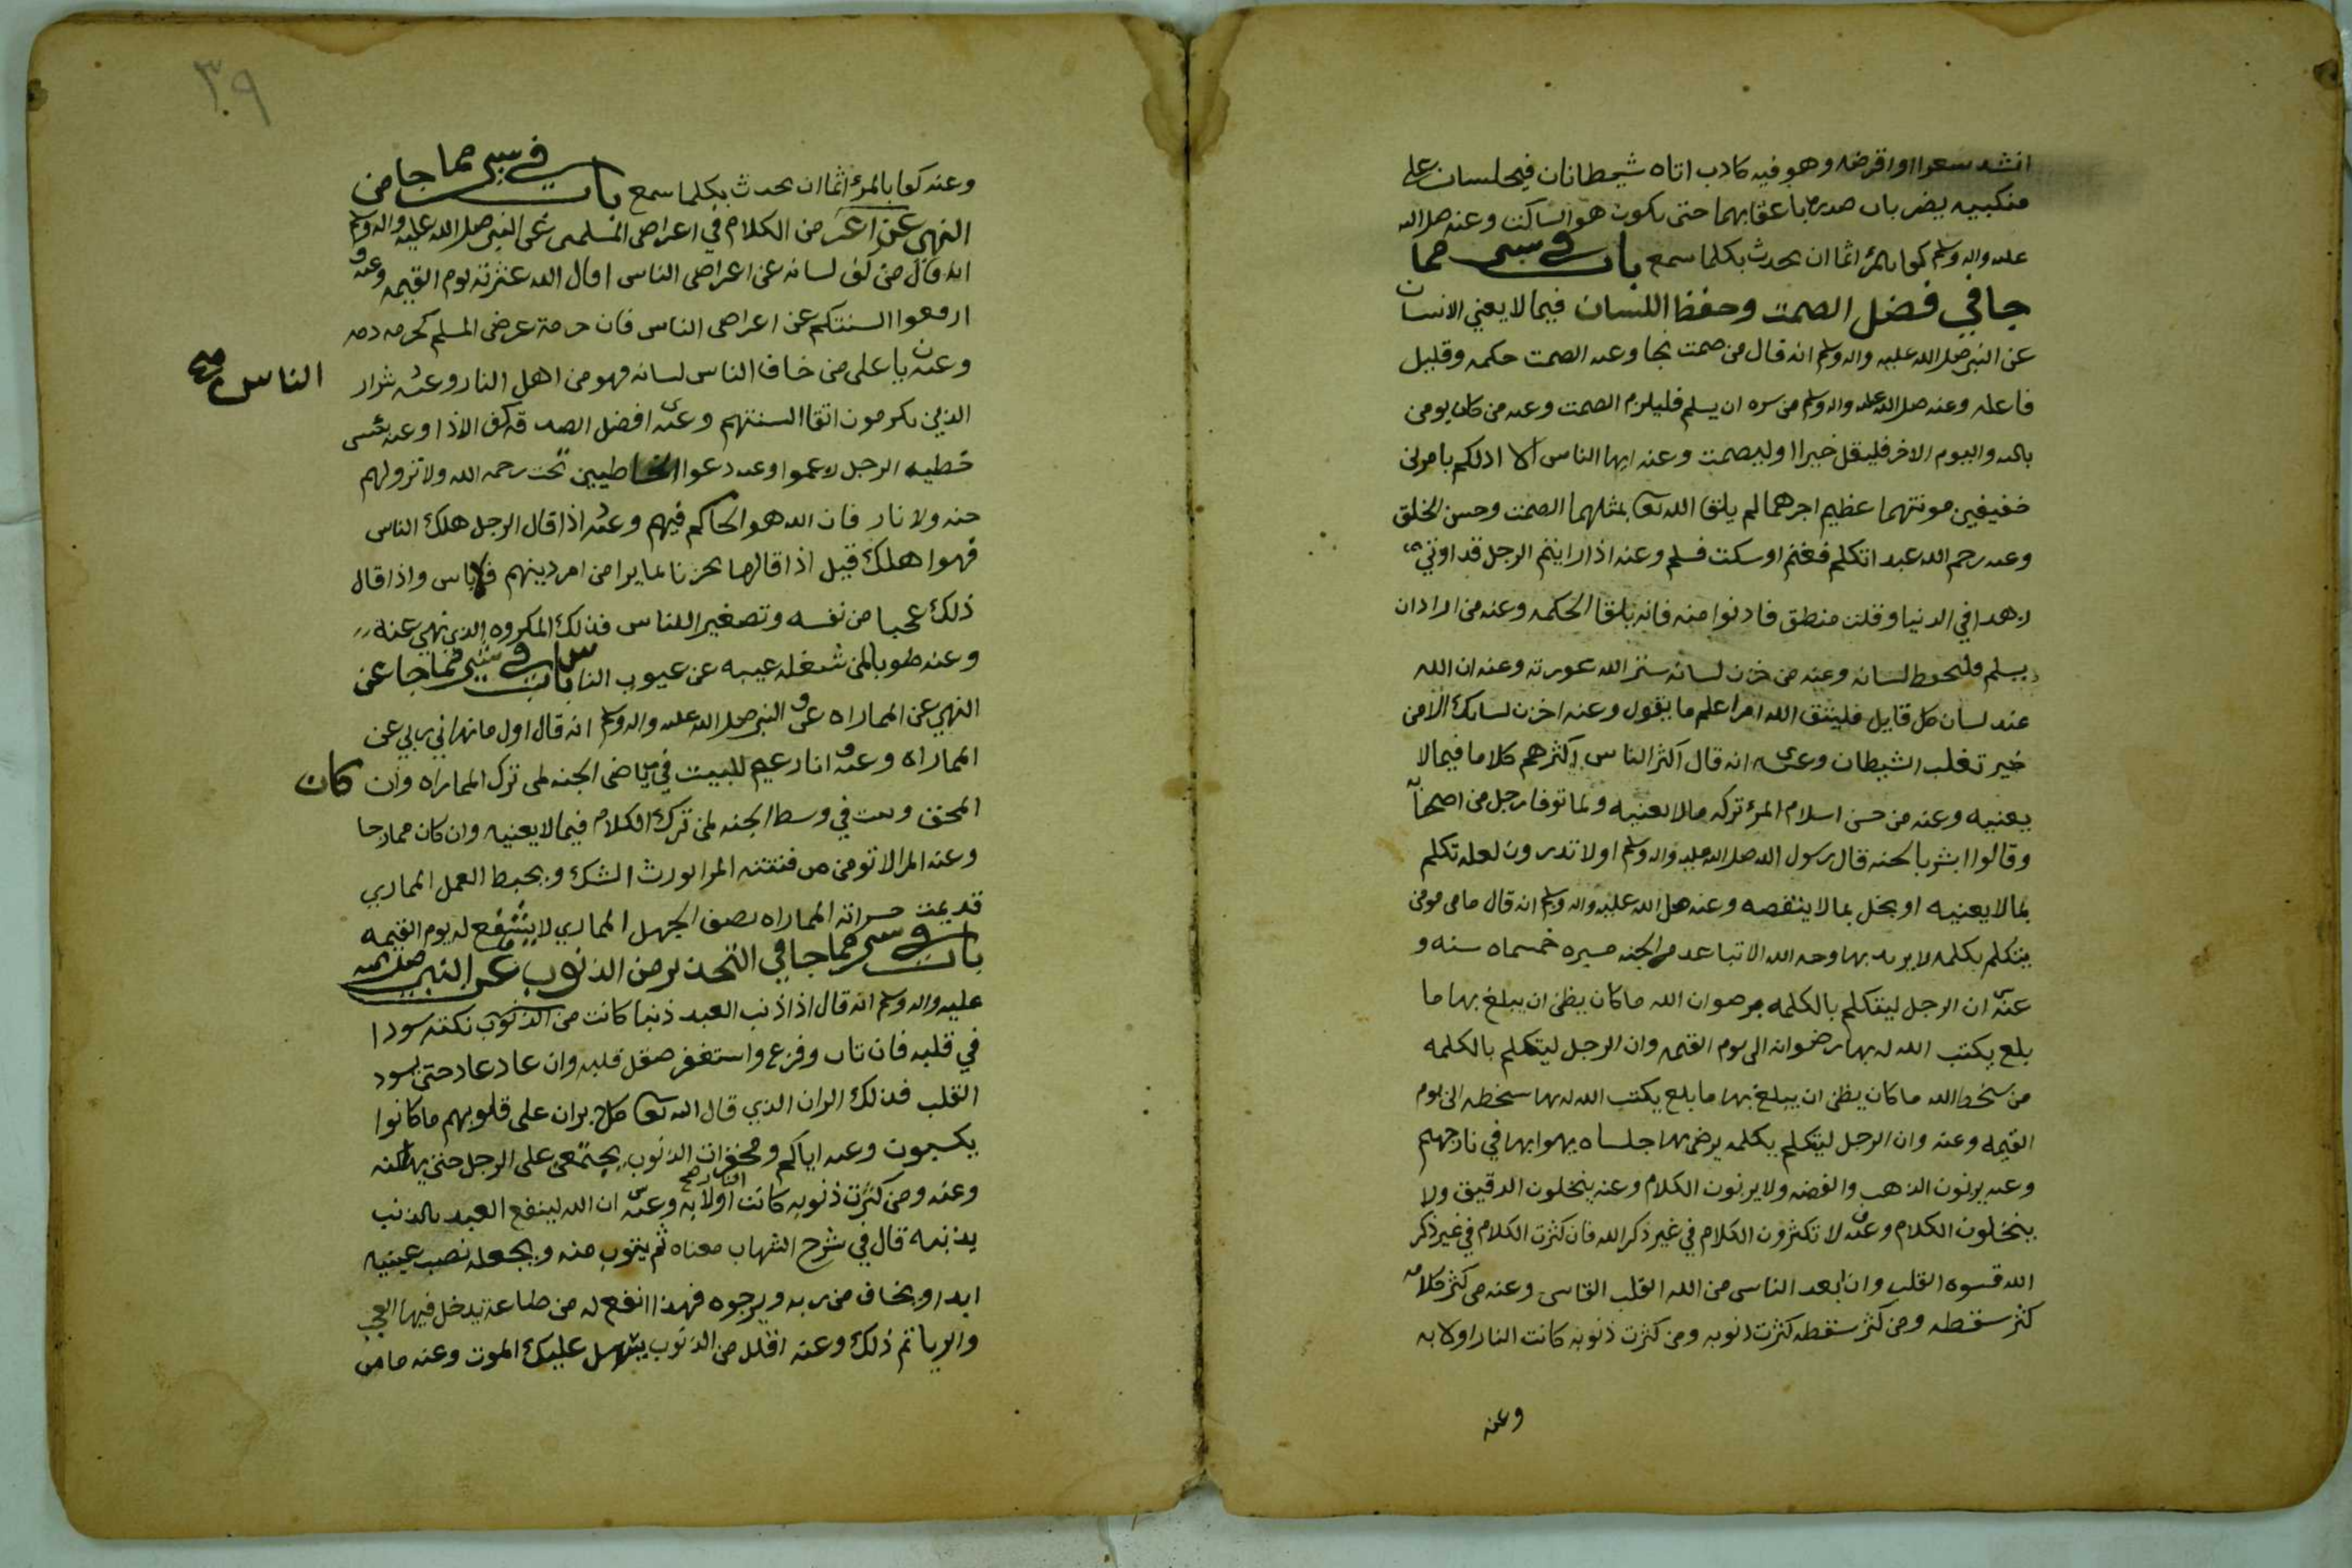 انشد سعرا او اقرضه وهو فيه كاذب اتاه شيطانان فيجلسان على
منكبيه يضربان صدره باعقابهما حتى يكون هو الساكت وعنه صلى الله
عليه واله وسلم كفا بالمرء اثما ان يحدث بكلما سمع باب في شي مما
جا في فضل الصمت وحفظ اللسان فيما لا يعني الانسان
عن النبي صلى الله عليه واله وسلم انه قال من صمت نجا وعنه الصمت حكمه وقليل
فاعله وعنه صلى الله عليه واله وسلم من سره ان يسلم فليلزم الصمت وعنه من كان يومن
بالله واليوم الاخر فليقل خيرا او ليصمت وعنه ايها الناس الا ادلكم بامرين
خفيفين مونتهما عظيم اجرهما لم يلقا الله تعا بمثلهما الصمت وحسن الخلق
وعنه رحم الله عبدا تكلم فغنم او سكت فسلم وعنه اذا رايتم الرجل قد اوتي
زهدا في الدنيا وقلت منطق فادنوا منه فانه يلقا الحكمه وعنه من اراد ان
يسلم فليحفظ لسانه وعنه من خزن لسانه ستر الله عورته وعنه ان الله
عند لسان كل قايل فليتق الله امرا علم ما يقول وعنه اخزن لسانك الا من
خير تغلب الشيطان وعنه انه قال اكثر الناس اكثرهم كلاما فيما لا
يعنيه وعنه من حسن اسلام المرء تركه مالا يعنيه ولما توفا رجل من اصحابه
وقالوا ابشر بالجنه قال رسول الله صلى الله عليه واله وسلم اولا تدرون لعله تكلم
بما لا يعنيه او بخل بما لا ينقصه وعنه صلى الله عليه واله وسلم انه قال ما من مومن
يتكلم بكلمه لا يريد بها وجه الله الا تباعد من الجنه مسيره خمسماه سنه و
عنه ان الرجل ليتكلم بالكلمه من رضوان الله ما كان يظن ان يبلغ بها ما
بلغ يكتب الله له بها رضوانه الى يوم القيمه وان الرجل ليتكلم بالكلمه
من سخط الله ما كان يظن ان يبلغ بها ما بلغ يكتب الله له بها سخطه الى يوم
القيمه وعنه وان الرجل ليتكلم بكلمه يرضي بها جلساه يهوا بها في نار جهنم
وعنه يزنون الذهب والفضه ولا يزنون الكلام وعنه ينخلون الدقيق ولا
ينخلون الكلام وعنه لا تكثرون الكلام في غير ذكر الله فان كثرت الكلام في غير ذكر
الله قسوه القلب وان ابعد الناس من الله القلب القاسي وعنه من كثر كلامه
كثر سقطه ومن كثر سقطه كثرت ذنوبه ومن كثرت ذنوبه كانت النار اولا به
وعنه
٣٩
وعنه كفا بالمرء اثما ان يحدث بكلما سمع باب في شي مما جا من
النهي عن من الكلام في اعراض المسلمين عن النبي صلى الله عليه واله وسلم
انه قال من كف لسانه عن اعراض الناس اقال الله عثرته يوم القيمه وعنه
ارفعوا السنتكم عن اعراض الناس فان حرمة عرض المسلم كحرمه دمه
وعنه يا علي من خاف الناس لسانه فهو من اهل النار وعنه شرار الناس
الذين يكرمون اتقا السنتهم وعنه افضل الصدقه كف الاذا وعنه
خطيه الرجل وعنه دعوا الخاطيين تحت رحمه الله ولا تنزولهم
جنه ولا نار فان الله هو الحاكم فيهم وعنه اذا قال الرجل هلك الناس
فهوا هلك قيل اذا قالها تحزنا لما يرا من امر دينهم فلا باس واذا قال
ذلك عجبا من نفسه وتصغيرا للناس فذلك المكروه الذي نهي عنه
وعنه طوبا لمن شغله عيبه عن عيوب الناس باب في شي مما جا عن
النهي عن المماراه عن النبي صلى الله عليه واله وسلم انه قال اول ما نهاني ربي عن
المماراه وعنه انا زعيم للبيت في رياض الجنه لمن ترك المماراه وان كان
المحق وبيت في وسط الجنه لمن ترك الكلام فيما لا يعنيه وان كان ممازحا
وعنه المرا لا تومن من فتنته المرا يورث الشك ويحبط العمل المماري
قد يمت حسراته المماراه نصف الجهل المماري لا يشفع له يوم القيمه
باب في شي مما جا في التحذير من الذنوب عن النبي صلى الله
عليه واله وسلم انه قال اذا اذنب العبد ذنبا كانت من الذنوب نكته سودا
في قلبه فان تاب وفزع واستغفر صقل قلبه وان عاد عاد حتى يسود
القلب فذلك الران الذي قال الله تعا كلا بل ران على قلوبهم ما كانوا
يكسبون وعنه اياكم ومحقرات الذنوب يجتمعن على الرجل حتى يهلكنه
وعنه ومن كثرت ذنوبه كانت النار صح اولا به وعنه ان الله لينفع العبد بالذنب
يذنبه قال في شرح الشهاب معناه ثم يتوب منه ويجعله نصب عينيه
ابدا ويخاف من ربه ويرجوه فهذا انفع له من طاعة يدخل فيها العجب
والريا ثم ذلك وعنه اقلل من الذنوب يسهل عليك الموت وعنه ما من